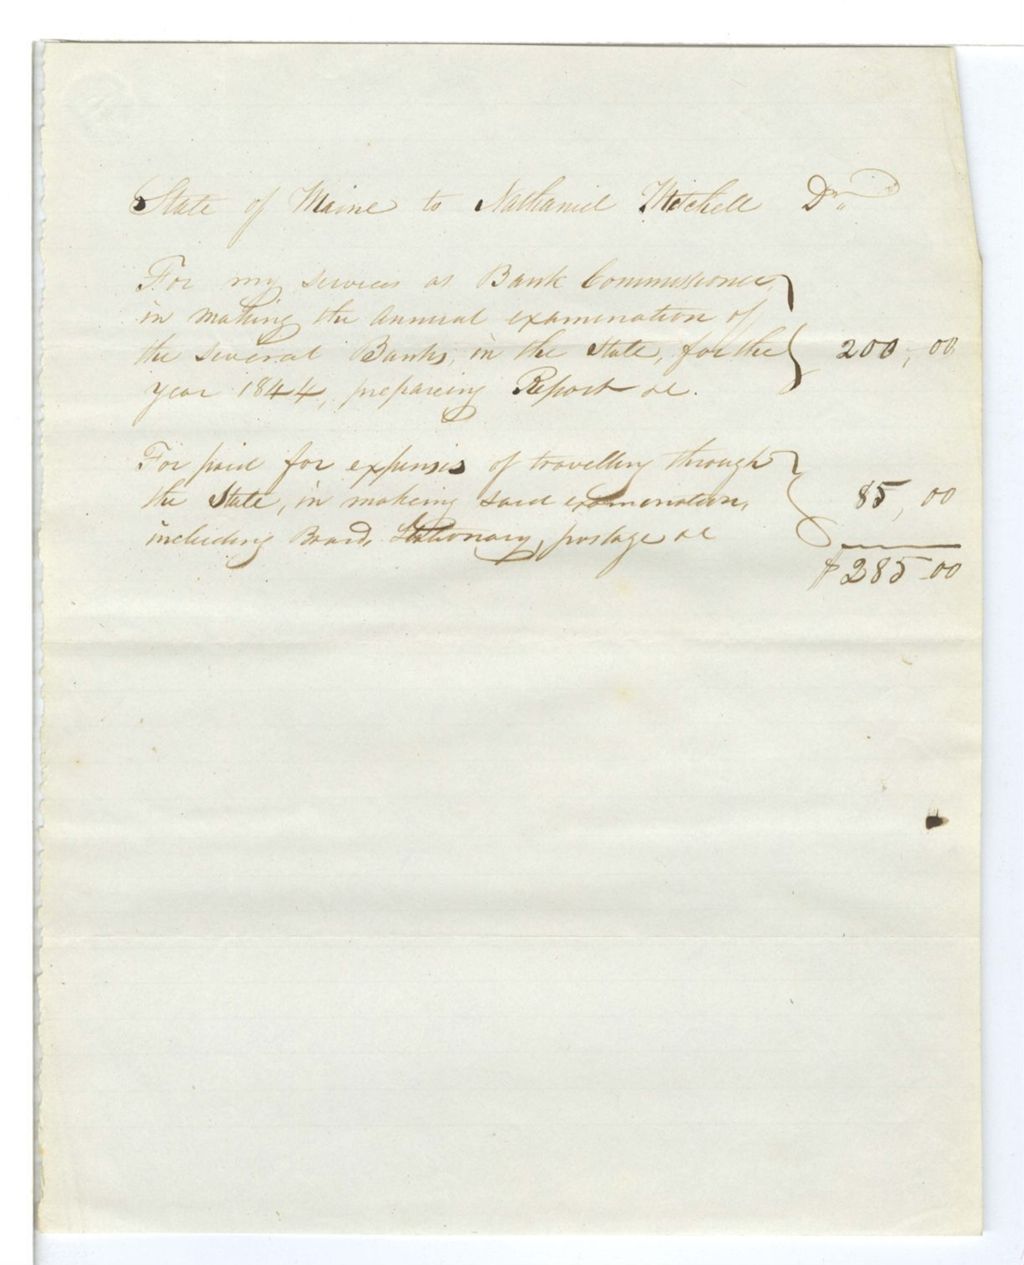 State of Maine to Nathaniel Mitchell Dr.
For my services as Bank Commissioner,
in making the annual examination of
the several Banks, in the State, for the
year 1844, preparing Report &c. 200,00
For paid for expenses of travelling through
the State, in making said examination,
including Board, Stationary, postage &c 85,00
$285.00